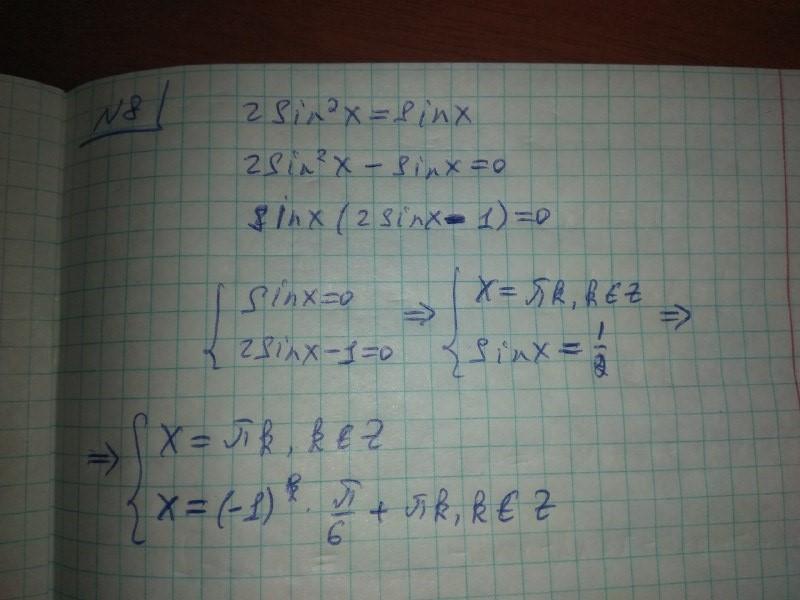 N8
2sin²x = sinx
2sin²x - sinx = 0
sinx(2sinx - 1) = 0
{ sinx = 0 ⇒ { x = πk, k ∈ Z ⇒
{ 2sinx - 1 = 0 { sinx = 1/2
⇒ { x = πk, k ∈ Z
{ x = (-1)^k · π/6 + πk, k ∈ Z